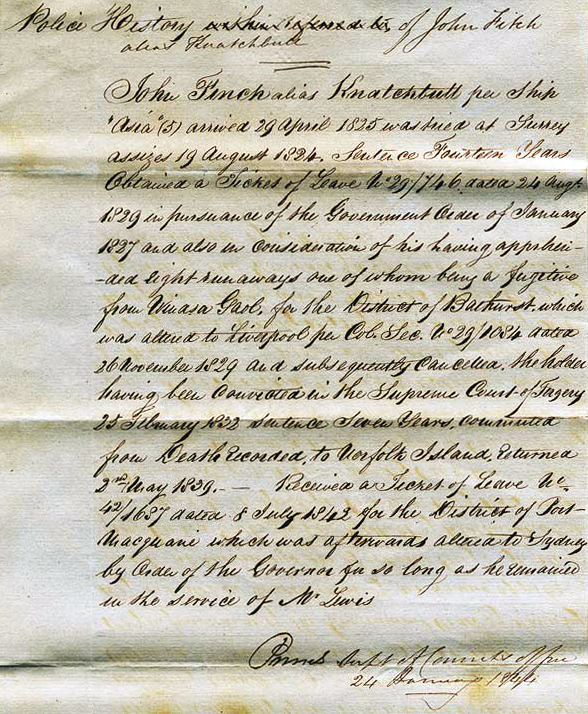 Police History within referred to, of John Fitch
alias Knatchbull
John Finch alias Knatchbull per Ship
"Asia" (5) arrived 29 April 1825 was tried at Surrey
assizes 19 August 1824, Sentence Fourteen Years
Obtained a Ticket of Leave No 29/746, dated 24 Augt
1829 in pursuance of the Government Order of January
1827 and also in consideration of his having apprehen-
-ded eight runaways one of whom being a fugitive
from Gaol, for the District of Bathurst, which
was altered to Liverpool per Col. Sec. No 29/1084 dated
26 November 1829 and subsequently Cancelled, the holder
having been Convicted in the Supreme Court of Forgery
25 February 1832 sentence Seven Years, commuted
from Death Recorded, to Norfolk Island, returned
2nd May 1839. — Received a Ticket of Leave No
42/1687 dated 8 July 1842 for the District of Port-
Macquarie which was afterwards altered to Sydney
by Order of the Governor for so long as he remained
in the service of Mr Lewis
Supt of Convicts office
24 January 1844